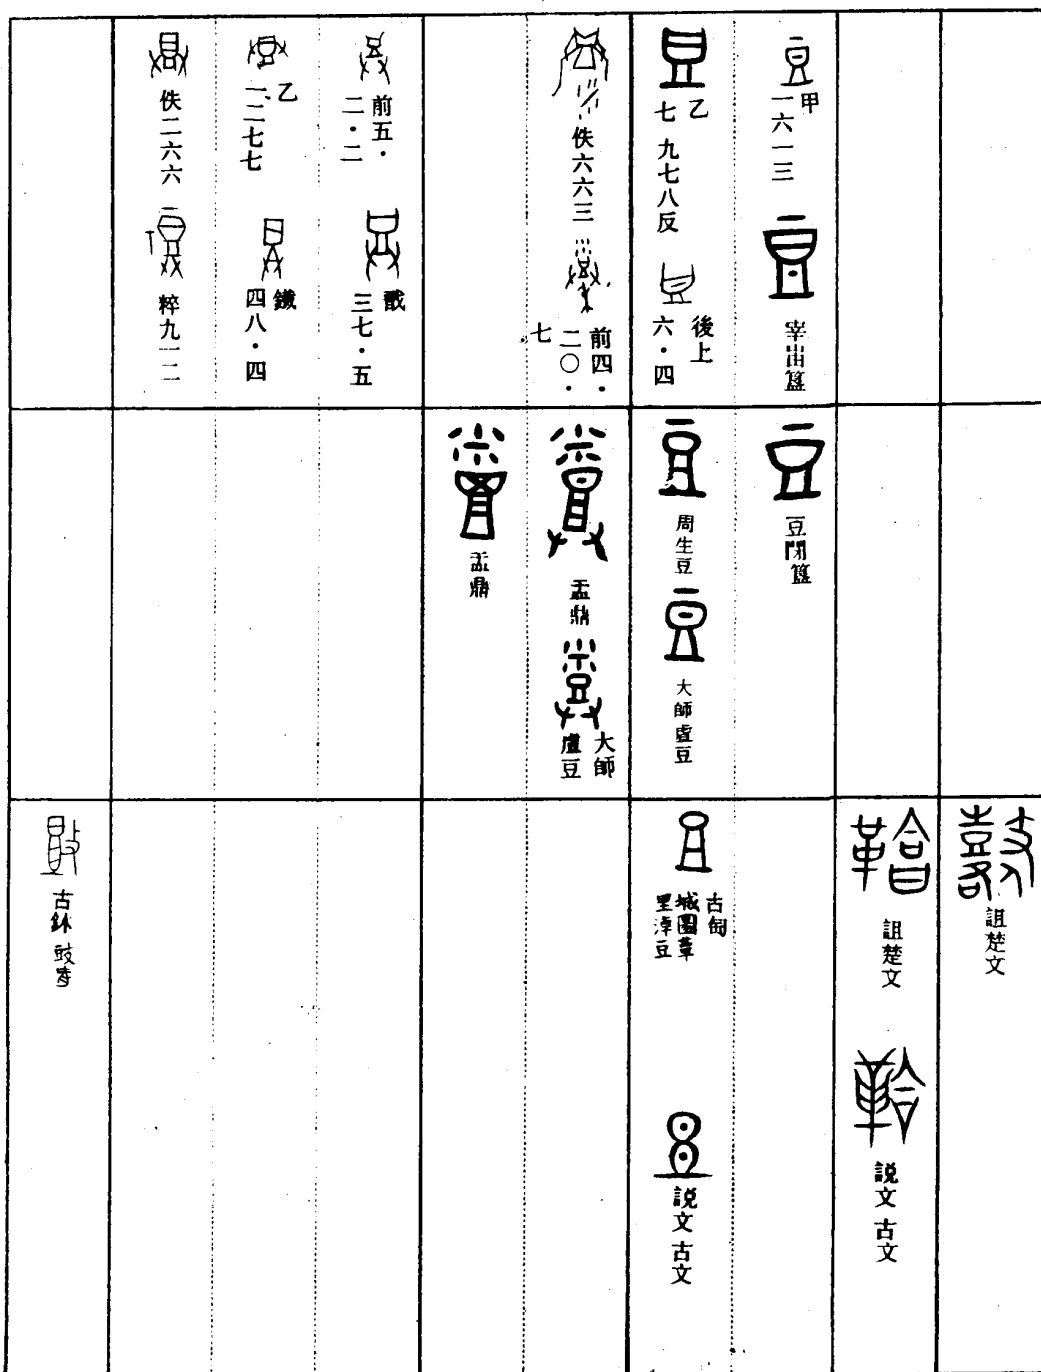 甲
一六一三
宰出簋
乙
七九七八反
後上
六・四
佚六六三
前四・
二〇・
七
前五・
二・二
戩
三七・五
乙
一二七七
鐵
四八・四
佚二六六
粹九一二
豆閉簋
周生豆
大師虘豆
盂鼎
大師
虘豆
盂鼎
詛楚文
詛楚文
説文古文
古匋
城圆䓬
里淖豆
説文古文
古鉨